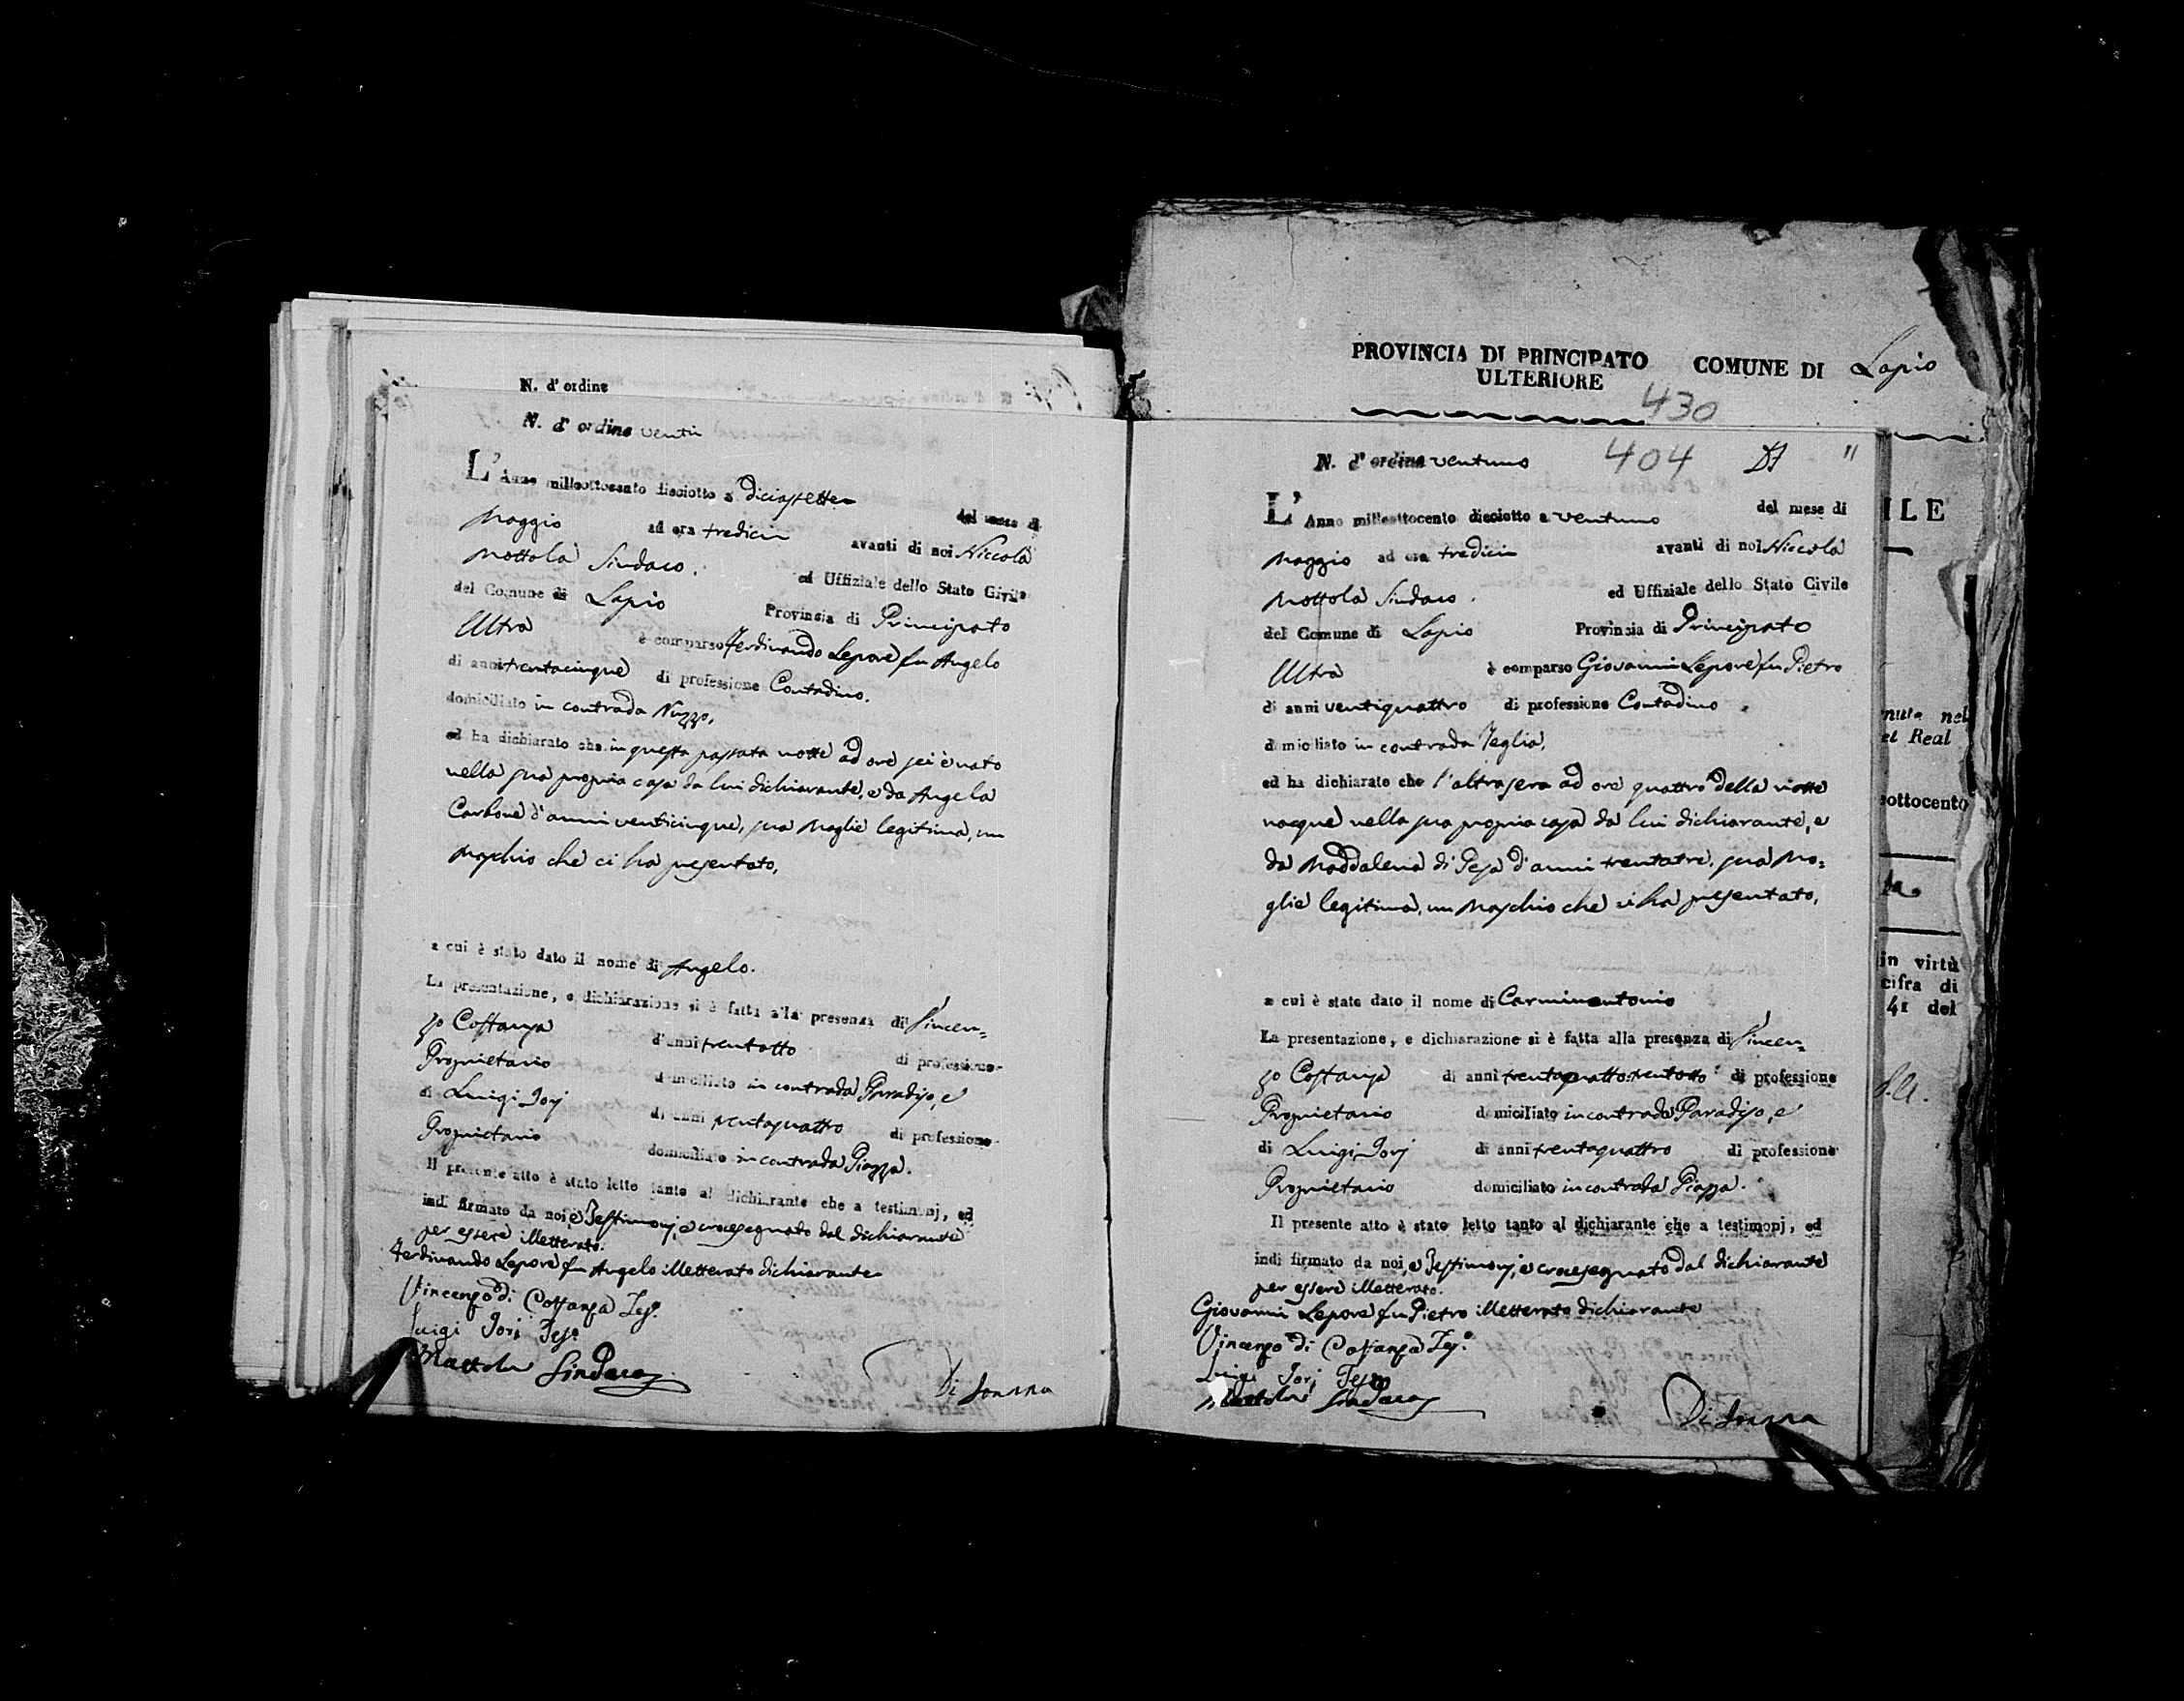 N. d' ordine
N. d' ordine venti
L' Anno milleottocento dieciotto a diciassette
del mese di
Maggio ad ora tredici avanti di noi Niccola
Mottola Sindaco. ed Uffiziale dello Stato Civile
del Comune di Lapio Provincia di Principato
Ultra è comparso Ferdinando Lepore fu Angelo
di anni trentacinque di professione Contadino.
domiciliato in contrada Nuzzo,
ed ha dichiarato che in questa passata notte ad ore sei è nato
nella sua propria casa da lui dichiarante, e da Angela
Carbone d'anni venticinque, sua Moglie legitima, un
Maschio che ci ha presentato,
a cui è stato dato il nome di Angelo.
La presentazione, e dichiarazione si è fatta alla presenza di Vincen=
zo Costanza d'anni trentotto di professione
Proprietario domiciliato in contrada Paradiso, e
di Luigi Iorj di anni trentaquattro di professione
Proprietario domiciliato in contrada Piazza.
Il presente atto è stato letto tanto al dichiarante che a testimonj, ed
indi firmato da noi, e Testimonj, e crocesegnato dal dichiarante
per essere illetterato.
Ferdinando Lepore fu Angelo illetterato dichiarante
Vincenzo di Costanza Tes.º
Luigi Iorj Tes.º
Mottola Sindaco
PROVINCIA DI PRINCIPATO ULTERIORE COMUNE DI Lapio
430
N. d' ordine ventuno 404 "
L' Anno milleottocento dieciotto a ventuno del mese di
Maggio ad ora tredici avanti di noi Niccola
Mottola Sindaco. ed Uffiziale dello Stato Civile
del Comune di Lapio Provincia di Principato
Ultra è comparso Giovanni Lepore fu Pietro
di anni ventiquattro di professione Contadino
domiciliato in contrada Teglia,
ed ha dichiarato che l'altra sera ad ore quattro della notte
nacque nella sua propria casa da lui dichiarante, e
da Maddalena di Pesa d'anni trentatre, sua Mo=
glie legitima, un Maschio che ci ha presentato,
a cui è stato dato il nome di Carminantonio
La presentazione, e dichiarazione si è fatta alla presenza di Vincen=
zo Costanza di anni trentaquattro trentotto di professione
Proprietario domiciliato in contrada Paradiso, e
di Luigi Iorj di anni trentaquattro di professione
Proprietario domiciliato in contrada Piazza.
Il presente atto è stato letto tanto al dichiarante che a testimonj, ed
indi firmato da noi, e Testimonj, e crocesegnato dal dichiarante
per essere illetterato.
Giovanni Lepore fu Pietro illetterato dichiarante
Vincenzo di Costanza Tes.º
Luigi Iorj Tes.º
Mottola Sindaco
ILE
nute nel
et Real
sottocento
in virtù
cifra di
41 del